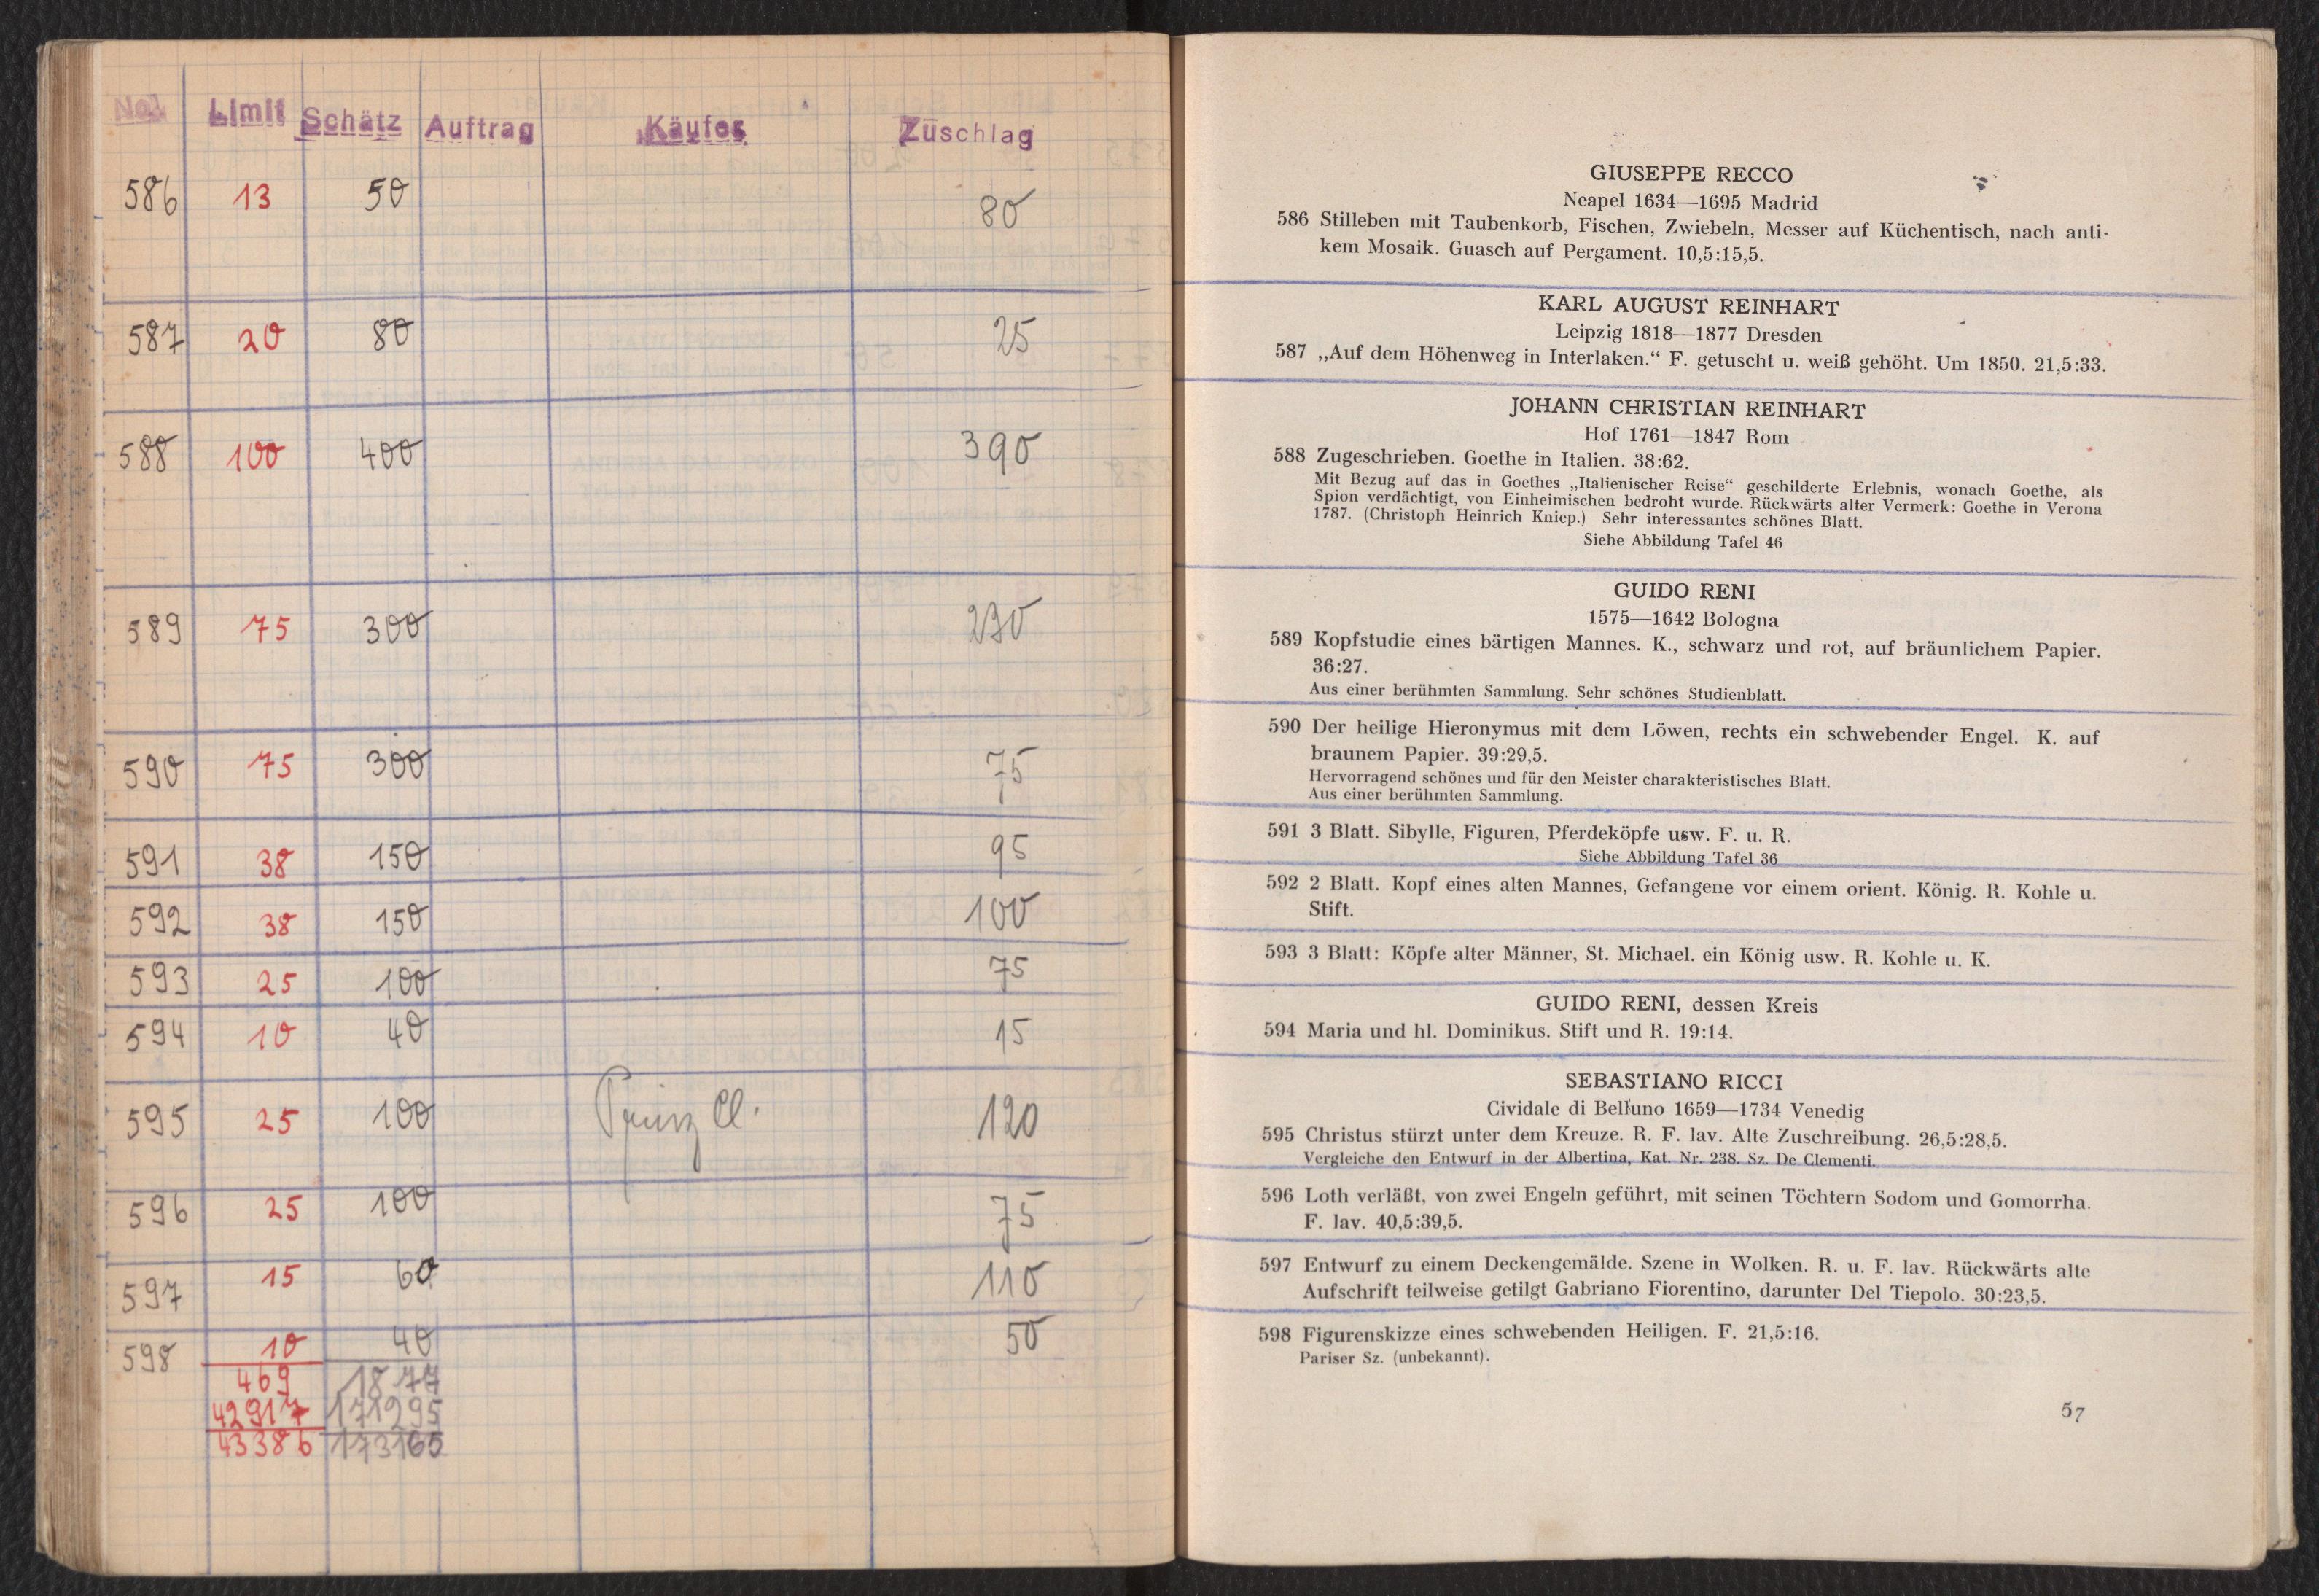 No. Limit Schätz Auftrag Käufer Zuschlag
586 13 50 80
587 20 80 25
588 100 400 390
589 75 300 230
590 75 300 75
591 38 150 95
592 38 150 100
593 25 100 75
594 10 40 15
595 25 100 Prinz Cl. 120
596 25 100 75
597 15 60 110
598 10 40 50
469
42917 171295
43386 173165
GIUSEPPE RECCO
Neapel 1634—1695 Madrid
586 Stilleben mit Taubenkorb, Fischen, Zwiebeln, Messer auf Küchentisch, nach anti-
kem Mosaik. Guasch auf Pergament. 10,5:15,5.
KARL AUGUST REINHART
Leipzig 1818—1877 Dresden
587 „Auf dem Höhenweg in Interlaken.“ F. getuscht u. weiß gehöht. Um 1850. 21,5:33.
JOHANN CHRISTIAN REINHART
Hof 1761—1847 Rom
588 Zugeschrieben. Goethe in Italien. 38:62.
Mit Bezug auf das in Goethes „Italienischer Reise“ geschilderte Erlebnis, wonach Goethe, als
Spion verdächtigt, von Einheimischen bedroht wurde. Rückwärts alter Vermerk: Goethe in Verona
1787. (Christoph Heinrich Kniep.) Sehr interessantes schönes Blatt.
Siehe Abbildung Tafel 46
GUIDO RENI
1575—1642 Bologna
589 Kopfstudie eines bärtigen Mannes. K., schwarz und rot, auf bräunlichem Papier.
36:27.
Aus einer berühmten Sammlung. Sehr schönes Studienblatt.
590 Der heilige Hieronymus mit dem Löwen, rechts ein schwebender Engel. K. auf
braunem Papier. 39:29,5.
Hervorragend schönes und für den Meister charakteristisches Blatt.
Aus einer berühmten Sammlung.
591 3 Blatt. Sibylle, Figuren, Pferdeköpfe usw. F. u. R.
Siehe Abbildung Tafel 36
592 2 Blatt. Kopf eines alten Mannes, Gefangene vor einem orient. König. R. Kohle u.
Stift.
593 3 Blatt: Köpfe alter Männer, St. Michael. ein König usw. R. Kohle u. K.
GUIDO RENI, dessen Kreis
594 Maria und hl. Dominikus. Stift und R. 19:14.
SEBASTIANO RICCI
Cividale di Belluno 1659—1734 Venedig
595 Christus stürzt unter dem Kreuze. R. F. lav. Alte Zuschreibung. 26,5:28,5.
Vergleiche den Entwurf in der Albertina, Kat. Nr. 238. Sz. De Clementi.
596 Loth verläßt, von zwei Engeln geführt, mit seinen Töchtern Sodom und Gomorrha.
F. lav. 40,5:39,5.
597 Entwurf zu einem Deckengemälde. Szene in Wolken. R. u. F. lav. Rückwärts alte
Aufschrift teilweise getilgt Gabriano Fiorentino, darunter Del Tiepolo. 30:23,5.
598 Figurenskizze eines schwebenden Heiligen. F. 21,5:16.
Pariser Sz. (unbekannt).
57